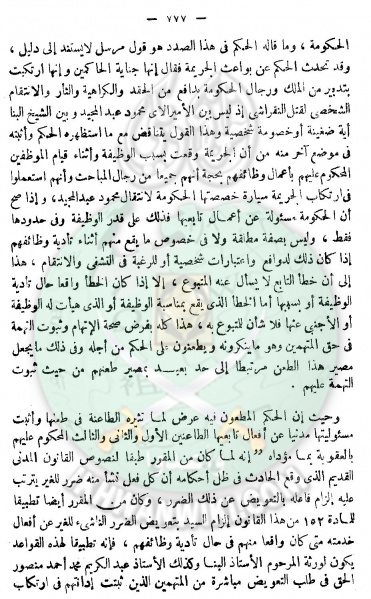 — ٧٧٧ —
الحكومة ، وما قاله الحكم فى هذا الصدد هو قول مرسل لا يستند إلى دليل ،
وقد تحدث الحكم عن بواعث الجريمة فقال إنها جناية الحاكمين وإنها ارتكبت
بتدبير من الملك ورجال الحكومة بدافع من الحقد والكراهية والثأر والانتقام
الشخصى لقتل النقراشى إذ ليس بين الأميرالاى محمود عبد المجيد وبين الشيخ البنا
أية ضغينة أو خصومة شخصية وهذا القول يتناقض مع ما استظهره الحكم وأثبته
فى موضع آخر منه من أن الجريمة وقعت بسبب الوظيفة وأثناء قيام الموظفين
المحكوم عليهم بأعمال وظائفهم بحجة أنهم جميعا من رجال المباحث وأنهم استعملوا
فى ارتكاب الجريمة سيارة خصصتها الحكومة لانتقال محمود عبد المجيد ، وإذا صح
أن الحكومة مسئولة عن أعمال تابعيها فذلك على قدر الوظيفة وفى حدودها
فقط ، وليس بصفة مطلقة ولا فى خصوص ما يقع منهم أثناء تأدية وظائفهم
إذا كان ذلك لدوافع واعتبارات شخصية أو للرغبة فى التشفى والانتقام ، هذا
إلى أن خطأ التابع لا يسأل عنه المتبوع ، إلا إذا كان الخطأ واقعا حال تأدية
الوظيفة أو بسببها أما الخطأ الذى يقع بمناسبة الوظيفة أو الذى هيأت له الوظيفة
أو الأجنبى عنها فلا شأن للمتبوع به ، هذا كله بفرض صحة الإتهام وثبوت التهمة
فى حق المتهمين وهو ما ينكرونه ويطعنون على الحكم من أجله وفى ذلك ما يجعل
مصير هذا الطعن مرتبطا إلى حد بعيد بمصير طعنهم من حيث ثبوت
التهمة عليهم .
وحيث إن الحكم المطعون فيه عرض لما تثيره الطاعنة فى طعنها وأثبت
مسئوليتها مدنيا عن أفعال تابعيها الطاعنين الأول والثانى والثالث المحكوم عليهم
بالعقوبة بما مؤداه " إنه لما كان من المقرر طبقا لنصوص القانون المدنى
القديم الذى وقع الحادث فى ظل أحكامه أن كل فعل نشأ منه ضرر للغير يترتب
عليه إلزام فاعله بالتعويض عن ذلك الضرر ، وكان من المقرر أيضا تطبيقا
للمادة ١٥٢ من هذا القانون إلزام السيد بتعويض الضرر الناشىء للغير عن أفعال
خدمته متى كان واقعا منهم فى حال تأدية وظائفهم ، فإنه تطبيقا لهذه القواعد
يكون لورثة المرحوم الأستاذ البنا وكذلك الأستاذ عبد الكريم محمد أحمد منصور
الحق فى طلب التعويض مباشرة من المتهمين الذين ثبتت إدانتهم فى ارتكاب